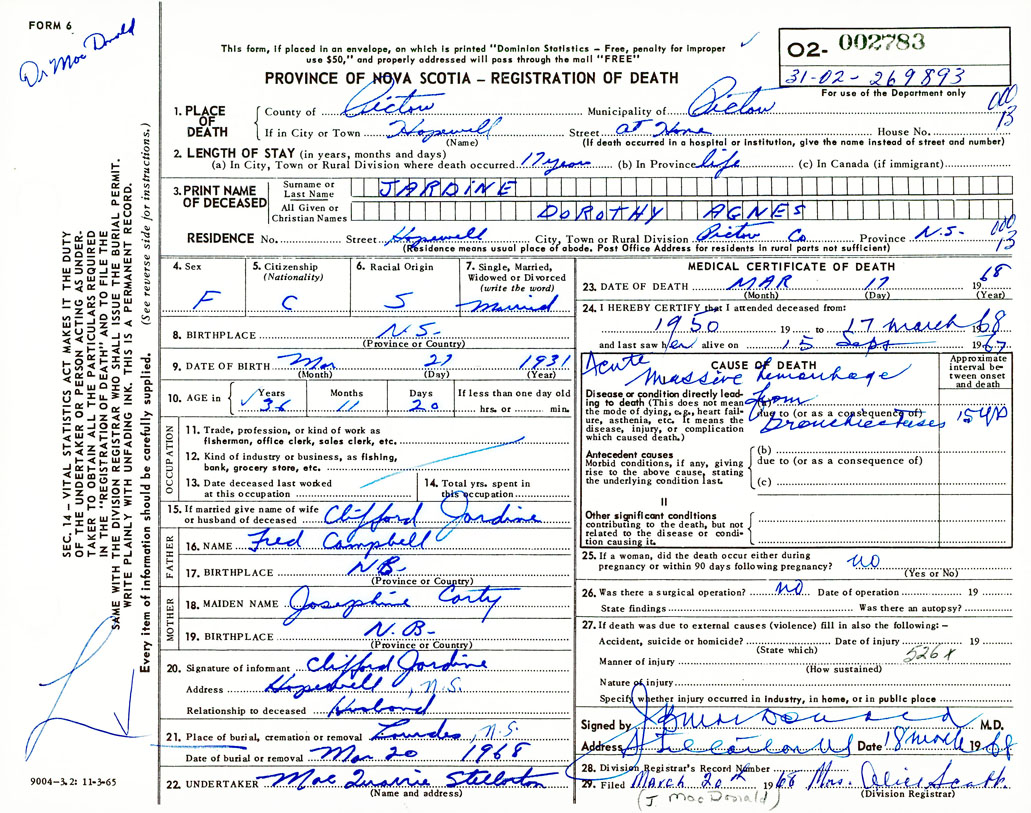 FORM 6
Dr MacDonald
This form, if placed in an envelope, on which is printed "Dominion Statistics – Free, penalty for improper
use $50," and properly addressed will pass through the mail "FREE"
PROVINCE OF NOVA SCOTIA – REGISTRATION OF DEATH
02- 002783
31-02-269893
For use of the Department only
1. PLACE OF DEATH
County of Pictou Municipality of Pictou
000
13
If in City or Town Hopewell Street at Home House No.
(Name) (If death occurred in a hospital or institution, give the name instead of street and number)
2. LENGTH OF STAY (in years, months and days)
(a) In City, Town or Rural Division where death occurred 17 years (b) In Province life (c) In Canada (if immigrant)
3. PRINT NAME OF DECEASED
Surname or Last Name JARDINE
All Given or Christian Names DOROTHY AGNES
RESIDENCE No. Street Hopewell City, Town or Rural Division Pictou Co. Province N.S.
000
13
(Residence means usual place of abode. Post Office Address for residents in rural parts not sufficient)
4. Sex
F
5. Citizenship
(Nationality)
C
6. Racial Origin
S
7. Single, Married,
Widowed or Divorced
(write the word)
Married
8. BIRTHPLACE N.S.
(Province or Country)
9. DATE OF BIRTH Mar 27 1931
(Month) (Day) (Year)
10. AGE in
Years Months Days If less than one day old
36 11 20 hrs. or min.
OCCUPATION
11. Trade, profession, or kind of work as
fisherman, office clerk, sales clerk, etc.
12. Kind of industry or business, as fishing,
bank, grocery store, etc.
13. Date deceased last worked
at this occupation
14. Total yrs. spent in
this occupation
15. If married give name of wife
or husband of deceased Clifford Jardine
FATHER
16. NAME Fred Campbell
17. BIRTHPLACE N.B.
(Province or Country)
MOTHER
18. MAIDEN NAME Josephine Corty
19. BIRTHPLACE N.B.
(Province or Country)
20. Signature of informant Clifford Jardine
Address Hopewell, N.S.
Relationship to deceased Husband
21. Place of burial, cremation or removal Lourdes, N.S.
Date of burial or removal Mar. 20 1968
22. UNDERTAKER Mac Quarrie Stellarton
(Name and address)
MEDICAL CERTIFICATE OF DEATH
23. DATE OF DEATH MAR 17 1968
(Month) (Day) (Year)
24. I HEREBY CERTIFY that I attended deceased from:
1950 19 to 17 March 1968
and last saw her alive on 15 Sept 1967
CAUSE OF DEATH
Approximate
interval be-
tween onset
and death
Acute
Massive hemorrhage
Disease or condition directly lead-
ing to death (This does not mean
the mode of dying, e.g., heart fail-
ure, asthenia, etc. It means the
disease, injury, or complication
which caused death.)
from
due to (or as a consequence of)
Bronchiectasis
Antecedent causes
Morbid conditions, if any, giving
rise to the above cause, stating
the underlying condition last.
(b)
due to (or as a consequence of)
(c)
II
Other significant conditions
contributing to the death, but not
related to the disease or condi-
tion causing it.
25. If a woman, did the death occur either during
pregnancy or within 90 days following pregnancy? no
(Yes or No)
26. Was there a surgical operation? no Date of operation 19
State findings Was there an autopsy?
27. If death was due to external causes (violence) fill in also the following: –
Accident, suicide or homicide? Date of injury 19
(State which)
526x
Manner of injury
(How sustained)
Nature of injury
Specify whether injury occurred in industry, in home, or in public place
Signed by M.D.
Address Stellarton NS Date 18 March 1968
28. Division Registrar's Record Number
29. Filed March 20th 1968 Mrs. Alice Scott
(J. MacDonald) (Division Registrar)
SEC. 14 – VITAL STATISTICS ACT MAKES IT THE DUTY
OF THE UNDERTAKER OR PERSON ACTING AS UNDER-
TAKER TO OBTAIN ALL THE PARTICULARS REQUIRED
IN THE "REGISTRATION OF DEATH" AND TO FILE THE
SAME WITH THE DIVISION REGISTRAR WHO SHALL ISSUE THE BURIAL PERMIT.
WRITE PLAINLY WITH UNFADING INK. THIS IS A PERMANENT RECORD.
Every item of information should be carefully supplied. (See reverse side for instructions.)
9004–3.2: 11-3-65